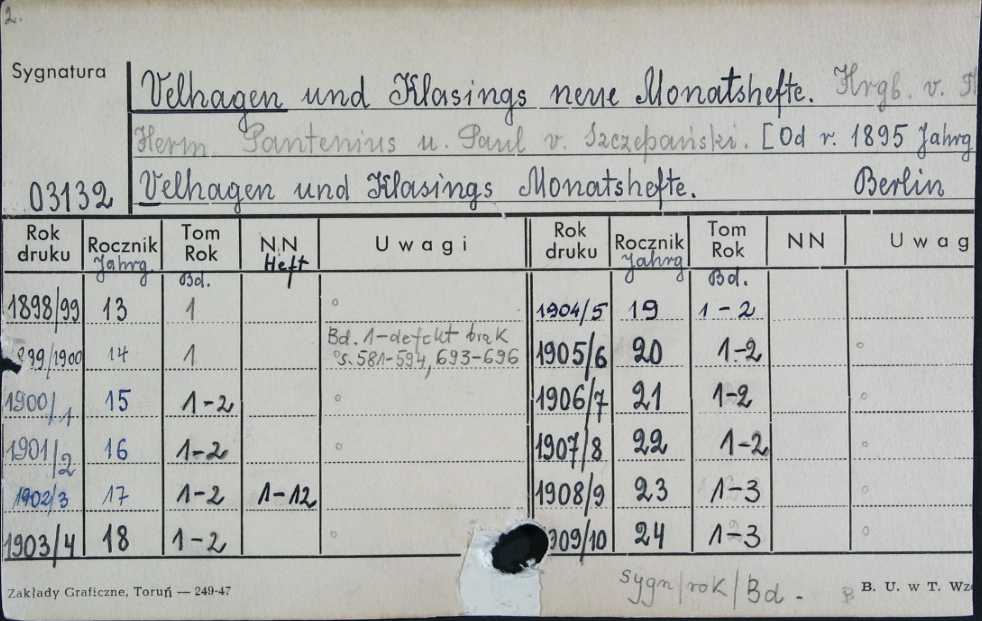 2.
Sygnatura
Velhagen und Klasings neue Monatshefte. Hrgb. v.
Herm Pantenius u. Paul v. Szczepański. [Od r. 1895 Jahrg
03132 Velhagen und Klasings Monatshefte. Berlin
Rok druku Rocznik Jahrg. Tom Rok Bd. NN Heft Uwagi Rok druku Rocznik Jahrg Tom Rok Bd. NN Uwag
1898/99 13 1 1904/5 19 1-2
899/1900 14 1 Bd. 1-defekt brak s. 581-594, 693-696 1905/6 20 1-2
1900/1 15 1-2 1906/7 21 1-2
1901/2 16 1-2 1907/8 22 1-2
1902/3 17 1-2 1-12 1908/9 23 1-3
1903/4 18 1-2 909/10 24 1-3
sygn/rok/Bd.
Zakłady Graficzne, Toruń — 249-47 B. U. w T. Wz